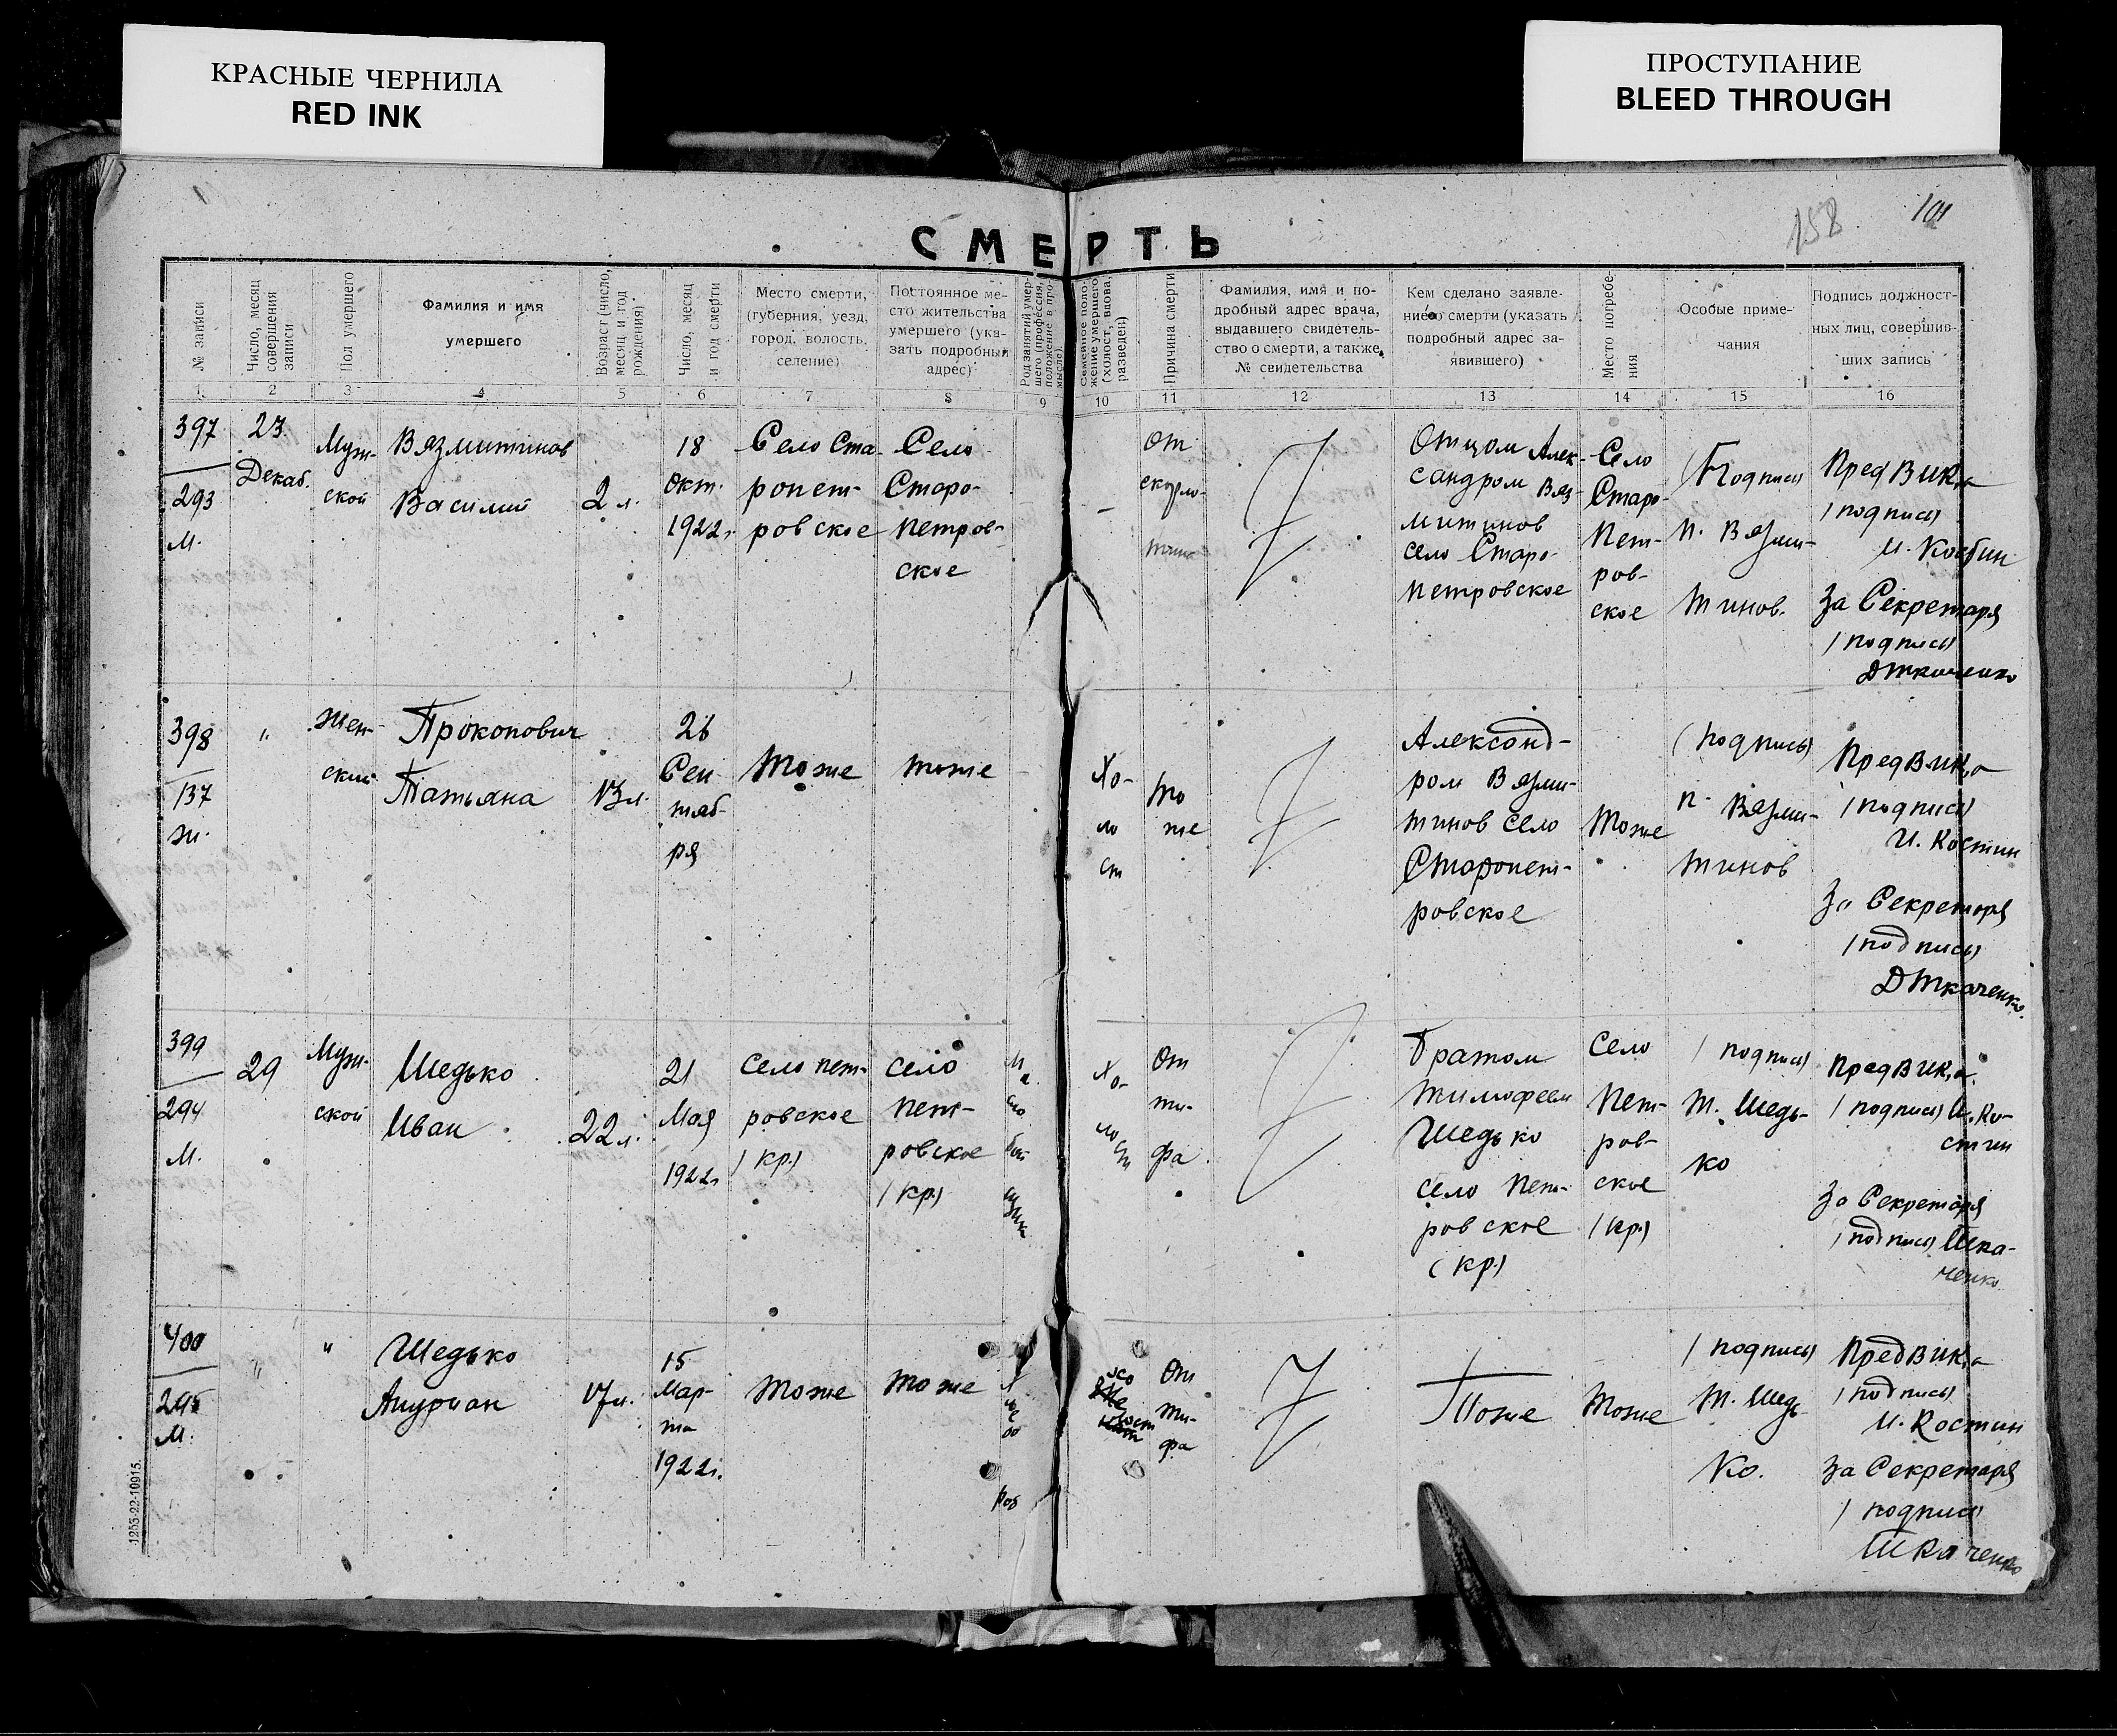 КРАСНЫЕ ЧЕРНИЛА
RED INK
ПРОСТУПАНИЕ
BLEED THROUGH
158
101
СМЕРТЬ
№ записи
Число, месяц
совершения
записи
Пол умершего
Фамилия и имя
умершего
Возраст (число,
месяц и год
рождения)
Число, месяц
и год смерти
Место смерти,
(губерния, уезд,
город, волость,
селение)
Постоянное ме-
сто жительства
умершего (ука-
зать подробный
адрес)
Род занятий умер-
шего (профессия,
положение в про-
мысле)
Семейное поло-
жение умершего
(холост, вдова,
разведен)
Причина смерти
Фамилия, имя и по-
дробный адрес врача,
выдавшего свидетель-
ство о смерти, а также
№ свидетельства
Кем сделано заявле-
ние о смерти (указать
подробный адрес за-
явившего)
Место погребе-
ния
Особые приме-
чания
Подпись должност-
ных лиц, совершив-
ших запись
1 2 3 4 5 6 7 8 9 10 11 12 13 14 15 16
397
293
м.
23
Декаб.
Муж-
ской
Вязмитинов
Василий
2 л.
18
Окт.
1922г.
Село Ста-
ропет-
ровское
Село
Старо-
Петров-
ское
—
От
Отцом Алек-
сандром Вяз-
митинов
село Старо-
петровское
Село
Старо-
Пет-
ров-
ское
(Подпись)
П. Вязми-
тинов.
ПредВИКа
/подпись/
И. Костин
За Секретаря
/подпись/
ДТкаченко
398
137
ж.
"
Жен-
ский
Прокопович
Татьяна
13л.
26
Сен-
тяб-
ря
Тоже
тоже
Хо-
ло
ст
То
же
Александ-
ром Вязми-
тинов село
Старопет-
ровское
Тоже
(подпись)
П. Вязми-
тинов
ПредВИКа
/подпись/
И. Костин
За Секретаря
/подпись/
ДТкаченко.
399
294
м.
29
Муж-
ской
Шедько
Иван
22л.
21
Мая
1922г
село Пет-
ровское
/кр./
село
Пет-
ровское
/кр./
Хо-
ло
ст
От
ти-
фа.
Братом
Тимофеем
Шедько
село Пет-
ровское
(кр.)
Село
Пет-
ров-
ское
/кр/
/подпись/
Т. Шедь-
ко
ПредВИКа.
/подпись/ И. Ко-
стин
За Секретаря
/подпись/ Тка-
ченко
400
295
м.
"
"
Шедько
17л.
15
Мар-
та
1922г.
Тоже
тоже
От
ти-
фа
Тоже
Тоже
/подпись/
Т. Шедь-
ко.
ПредВИКа
/подпись/
И. Костин
За Секретаря
/подпись/
Ткаченко
1255-22-10915.